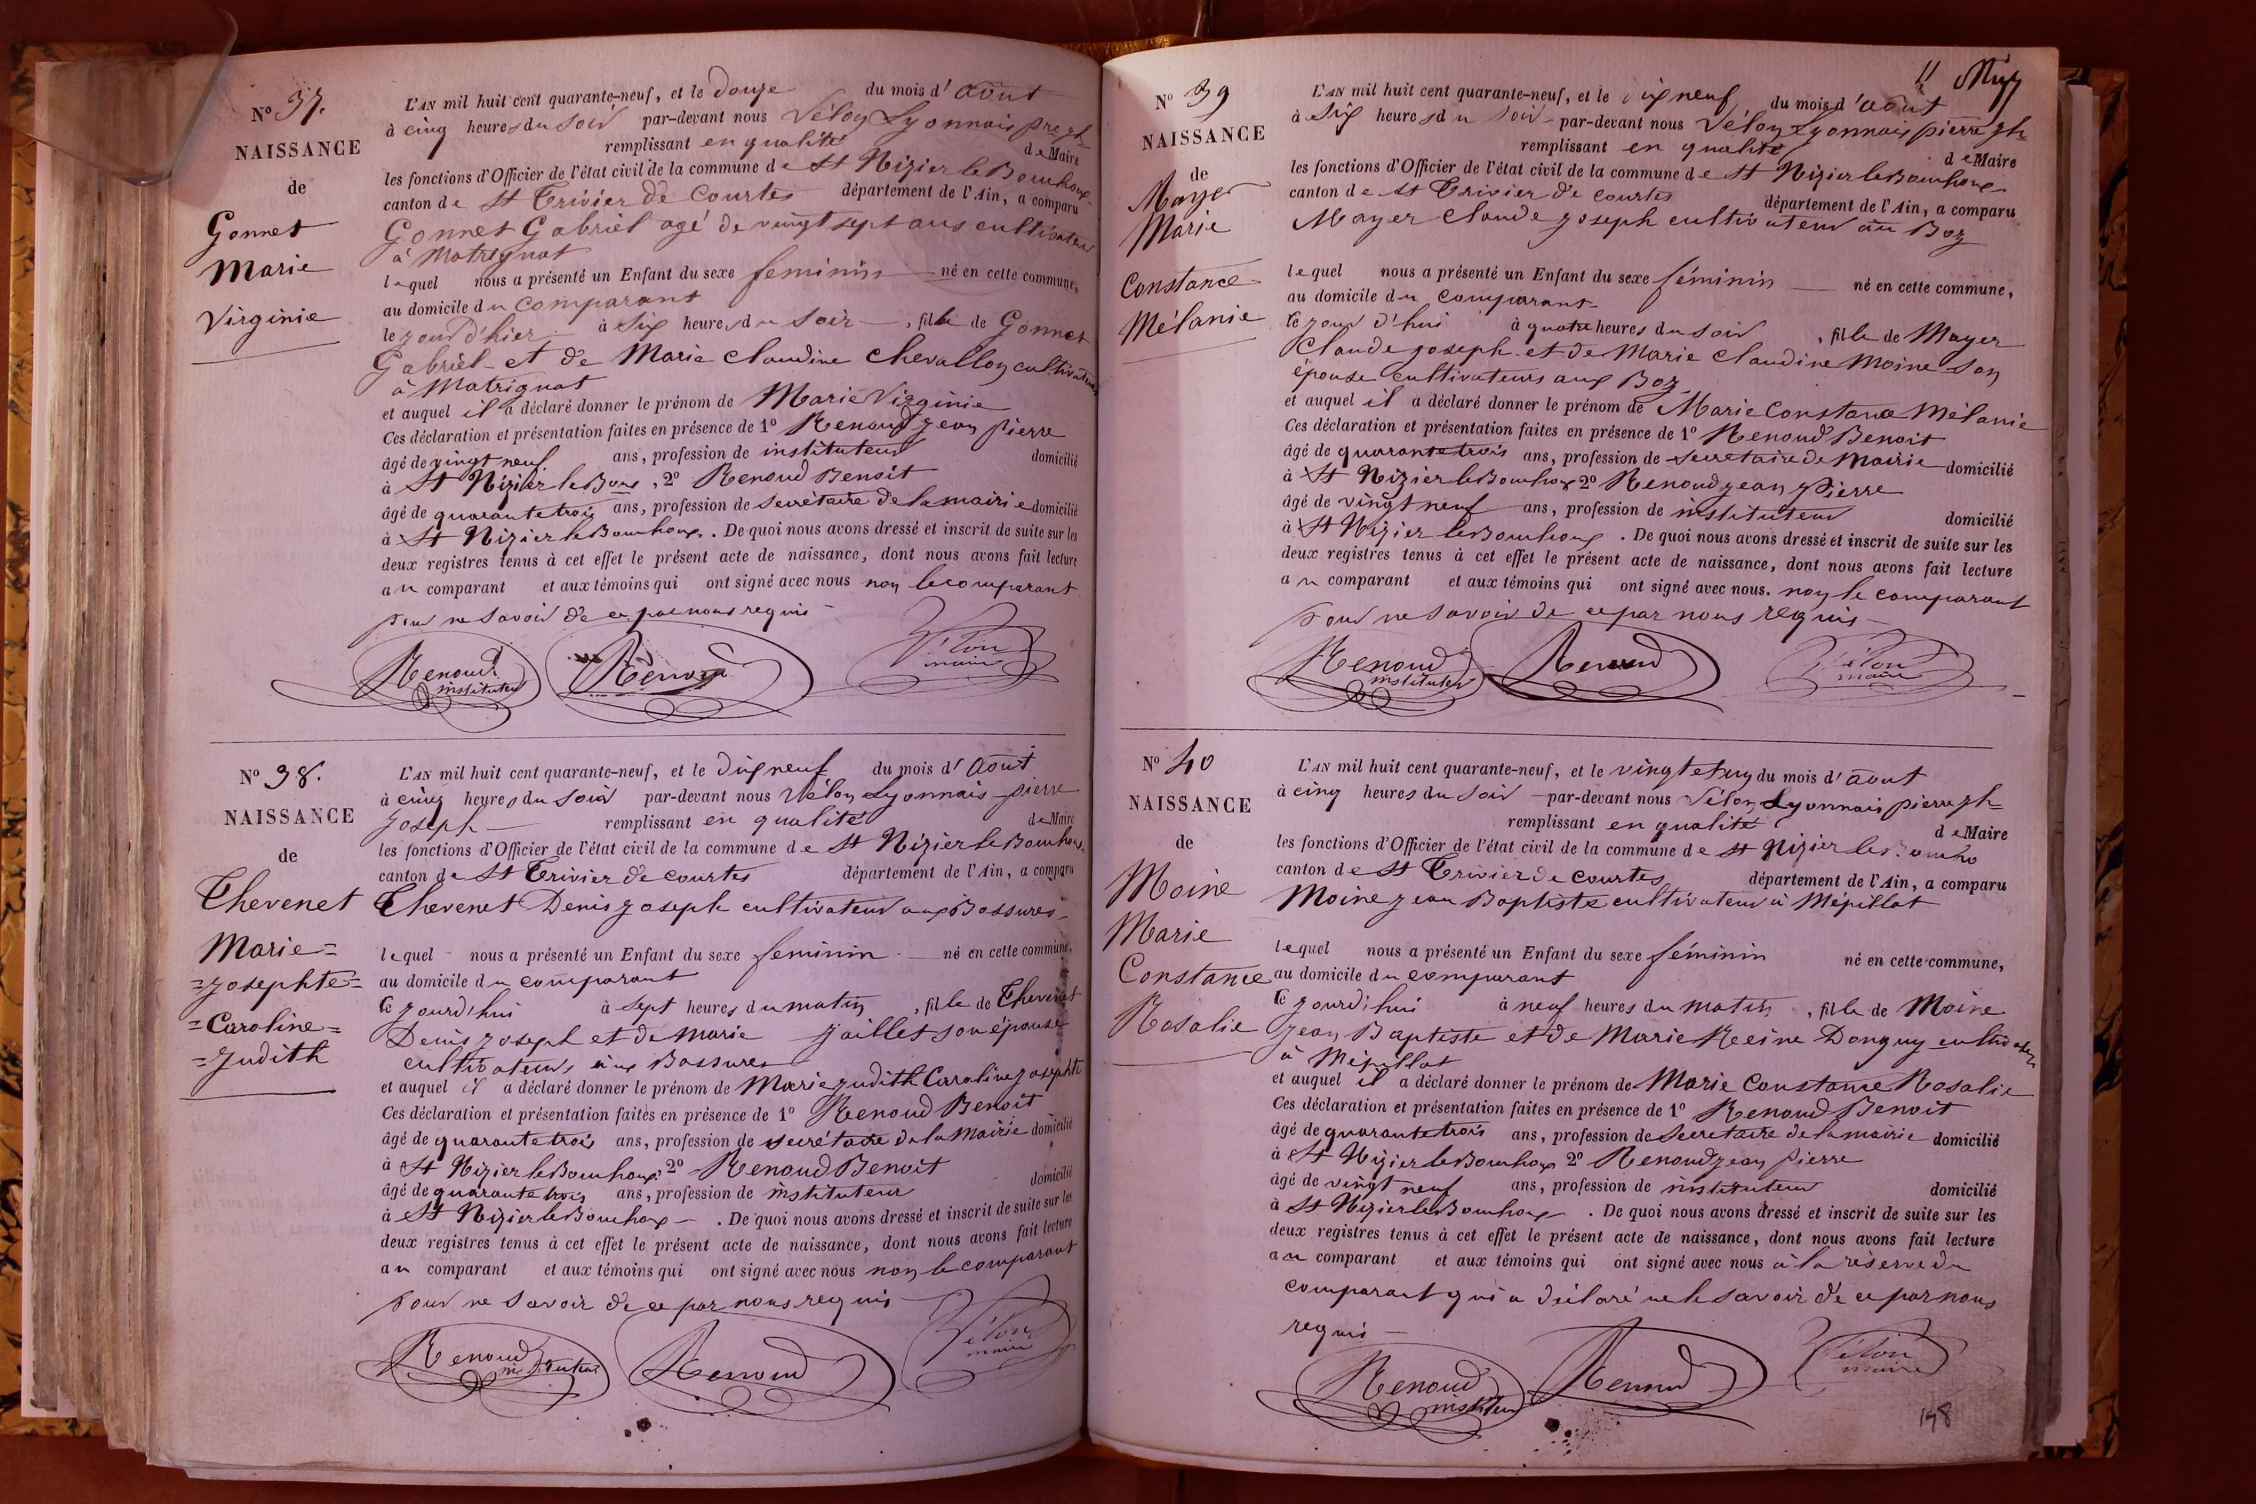 N° 37.
NAISSANCE
de
Gonnet
Marie
Virginie
L'AN mil huit cent quarante-neuf, et le douze du mois d'août
à cinq heures du soir par-devant nous Vélon Lyonnais pre jh
remplissant en qualité de Maire
les fonctions d'Officier de l'état civil de la commune de St Nizier le Bouhoux
canton de St Trivier de Courtes département de l'Ain, a comparu
Gonnet Gabriel agé de vingt sept ans cultivateur
à Matrignat
lequel nous a présenté un Enfant du sexe feminin né en cette commune,
au domicile du comparant
le jour d'hier à six heures du soir, fille de Gonnet
Gabriel et de Marie Claudine Chevallon cultivateurs
à Matrignat
et auquel il a déclaré donner le prénom de Marie Virginie
Ces déclaration et présentation faites en présence de 1° Renoud jean pierre
âgé de vingt neuf ans, profession de instituteur domicilié
à St Nizier le Bouh, 2° Renoud Benoit
âgé de quarante trois ans, profession de secrétaire de la mairie domicilié
à St Nizier le Bouhoux. De quoi nous avons dressé et inscrit de suite sur les
deux registres tenus à cet effet le présent acte de naissance, dont nous avons fait lecture
au comparant et aux témoins qui ont signé avec nous non le comparant
pour ne savoir de ce par nous requis
Renoud instituteur Renoud Vélon maire
N° 38.
NAISSANCE
de
Thevenet
Marie=
=josephte=
=Caroline=
=judith
L'AN mil huit cent quarante-neuf, et le dix neuf du mois d'Aout
à cinq heures du soir par-devant nous Vélon Lyonnais pierre
joseph remplissant en qualité de Maire
les fonctions d'Officier de l'état civil de la commune de St Nizier le Bouhoux
canton de St Trivier de Courtes département de l'Ain, a comparu
Thevenet Denis joseph cultivateur aux Bossures
lequel nous a présenté un Enfant du sexe feminin né en cette commune,
au domicile du comparant
ce jourd'hui à sept heures du matin, fille de Thevenet
Denis joseph et de Marie jaillet son épouse
cultivateurs aux Bossures
et auquel il a déclaré donner le prénom de Marie judith Caroline josephte
Ces déclaration et présentation faites en présence de 1° Renoud Benoit
âgé de quarante trois ans, profession de secrétaire de la Mairie domicilié
à St Nizier le Bouhoux, 2° Renoud Benoit
âgé de quarante trois ans, profession de instituteur domicilié
à St Nizier le Bouhoux. De quoi nous avons dressé et inscrit de suite sur les
deux registres tenus à cet effet le présent acte de naissance, dont nous avons fait lecture
au comparant et aux témoins qui ont signé avec nous non le comparant
pour ne savoir de ce par nous requis
Renoud instituteur Renoud Vélon maire
N° 39
NAISSANCE
de
Mayer
Marie
Constance
Mélanie
L'AN mil huit cent quarante-neuf, et le dix neuf du mois d'aout
à six heures du soir par-devant nous Vélon Lyonnais pierre jh
remplissant en qualité de Maire
les fonctions d'Officier de l'état civil de la commune de St Nizier le Bouhoux
canton de St Trivier de Courtes département de l'Ain, a comparu
Mayer Claude joseph cultivateur au Boz
lequel nous a présenté un Enfant du sexe féminin né en cette commune,
au domicile du comparant
ce jour d'hui à quatre heures du soir, fille de Mayer
Claude joseph et de Marie Claudine Moine son
épouse cultivateurs aux Boz
et auquel il a déclaré donner le prénom de Marie Constance Mélanie
Ces déclaration et présentation faites en présence de 1° Renoud Benoit
âgé de quarante trois ans, profession de secretaire de Mairie domicilié
à St Nizier le Bouhoux 2° Renoud jean Pierre
âgé de vingt neuf ans, profession de instituteur domicilié
à St Nizier le Bouhoux. De quoi nous avons dressé et inscrit de suite sur les
deux registres tenus à cet effet le présent acte de naissance, dont nous avons fait lecture
au comparant et aux témoins qui ont signé avec nous. non le comparant
pour ne savoir de ce par nous requis
Renoud instituteur Renoud Vélon maire
N° 40
NAISSANCE
de
Moine
Marie
Constance
Rosalie
L'AN mil huit cent quarante-neuf, et le vingt et un du mois d'aout
à cinq heures du soir par-devant nous Vélon Lyonnais pierre jh
remplissant en qualité de Maire
les fonctions d'Officier de l'état civil de la commune de St Nizier le Bouho
canton de St Trivier de Courtes département de l'Ain, a comparu
Moine jean Baptiste cultivateur à Mépillat
lequel nous a présenté un Enfant du sexe féminin né en cette commune,
au domicile du comparant
ce jourd'hui à neuf heures du matin, fille de Moine
jean Baptiste et de Marie Reine Donguy cultivateurs
à Mépillat
et auquel il a déclaré donner le prénom de Marie Constance Rosalie
Ces déclaration et présentation faites en présence de 1° Renoud Benoit
âgé de quarante trois ans, profession de secretaire de la mairie domicilié
à St Nizier le Bouhoux 2° Renoud jean pierre
âgé de vingt neuf ans, profession de instituteur domicilié
à St Nizier le Bouhoux. De quoi nous avons dressé et inscrit de suite sur les
deux registres tenus à cet effet le présent acte de naissance, dont nous avons fait lecture
au comparant et aux témoins qui ont signé avec nous à la réserve du
comparant qui a déclaré ne le savoir de ce par nous
requis
Renoud instituteur Renoud Vélon maire
198